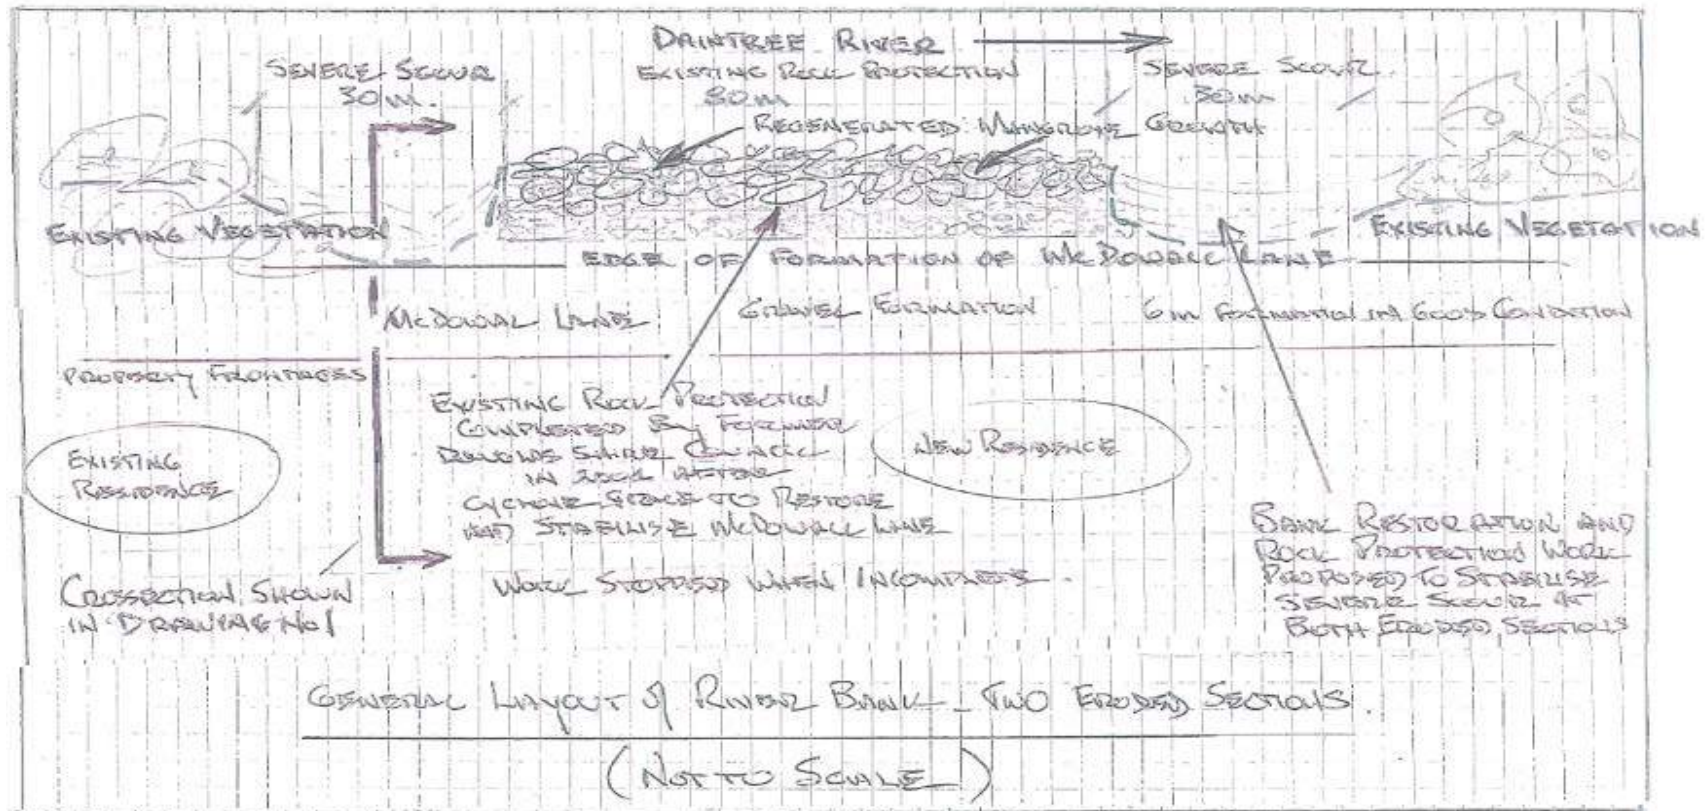 DAINTREE RIVER
SEVERE SCOUR
30m.
EXISTING ROCK PROTECTION
80m
SEVERE SCOUR
30m
REGENERATED MANGROVE GROWTH
EXISTING VEGETATION
EXISTING VEGETATION
EDGE OF FORMATION OF McDOWALL LANE
McDOWAL LANE
GRAVEL FORMATION
6m FORMATION IN GOOD CONDITION
PROPERTY FRONTAGES
EXISTING RESIDENCE
EXISTING ROCK PROTECTION
COMPLETED BY FORMER
DOUGLAS SHIRE COUNCIL
IN AFTER
CYCLONE TO RESTORE
AND STABILISE McDOWALL LANE
WORK STOPPED WHEN INCOMPLETE.
NEW RESIDENCE
CROSSECTION SHOWN
IN DRAWING No 1
BANK RESTORATION AND
ROCK PROTECTION WORK
PROPOSED TO STABILISE
SEVERE SCOUR AT
BOTH ERODED SECTIONS
GENERAL LAYOUT OF RIVER BANK - TWO ERODED SECTIONS.
(NOT TO SCALE)